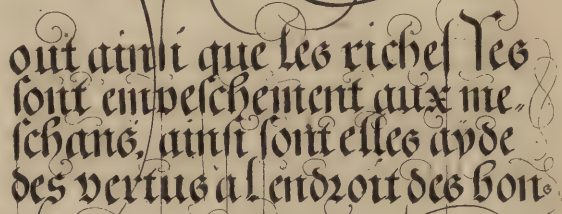 out ainſi que les richeſſes
ſont empeſchement aux me-
ſchans, ainſi ſont elles ayde
des vertus a l endroit des bons